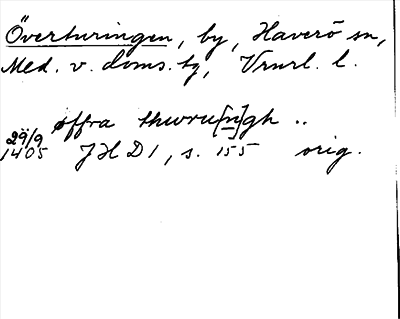 Överturingen, by, Haverö sn,
Med. v. doms. tg, Vrnrl. l.
øffra thwru[n]gh ..
29/9 1405 JHD 1, s. 155 orig.